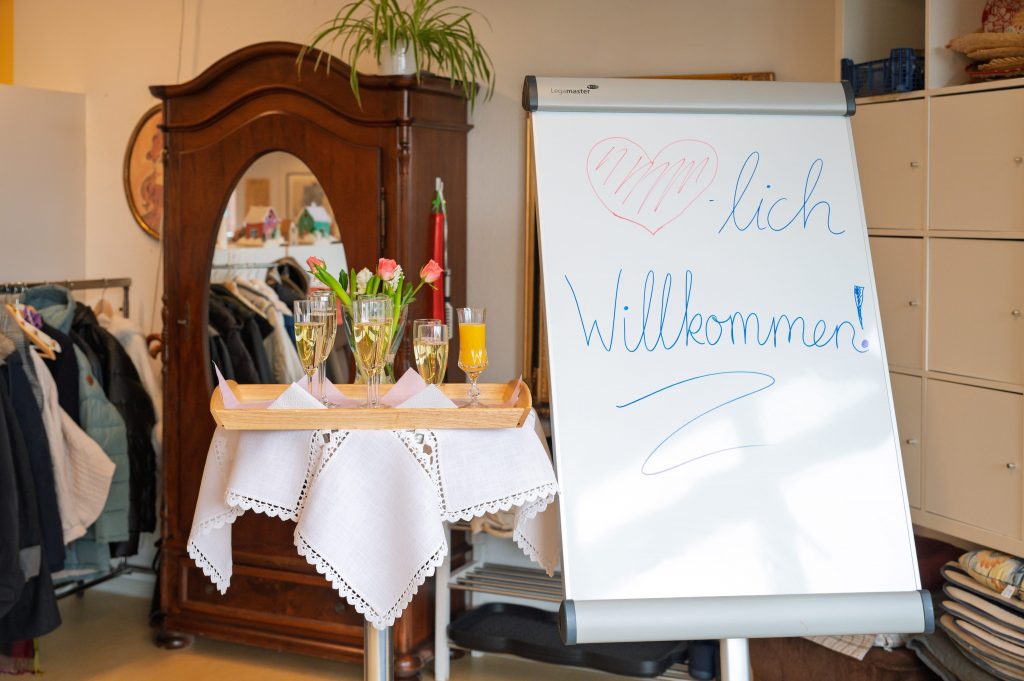 Legamaster
-lich
Willkommen!